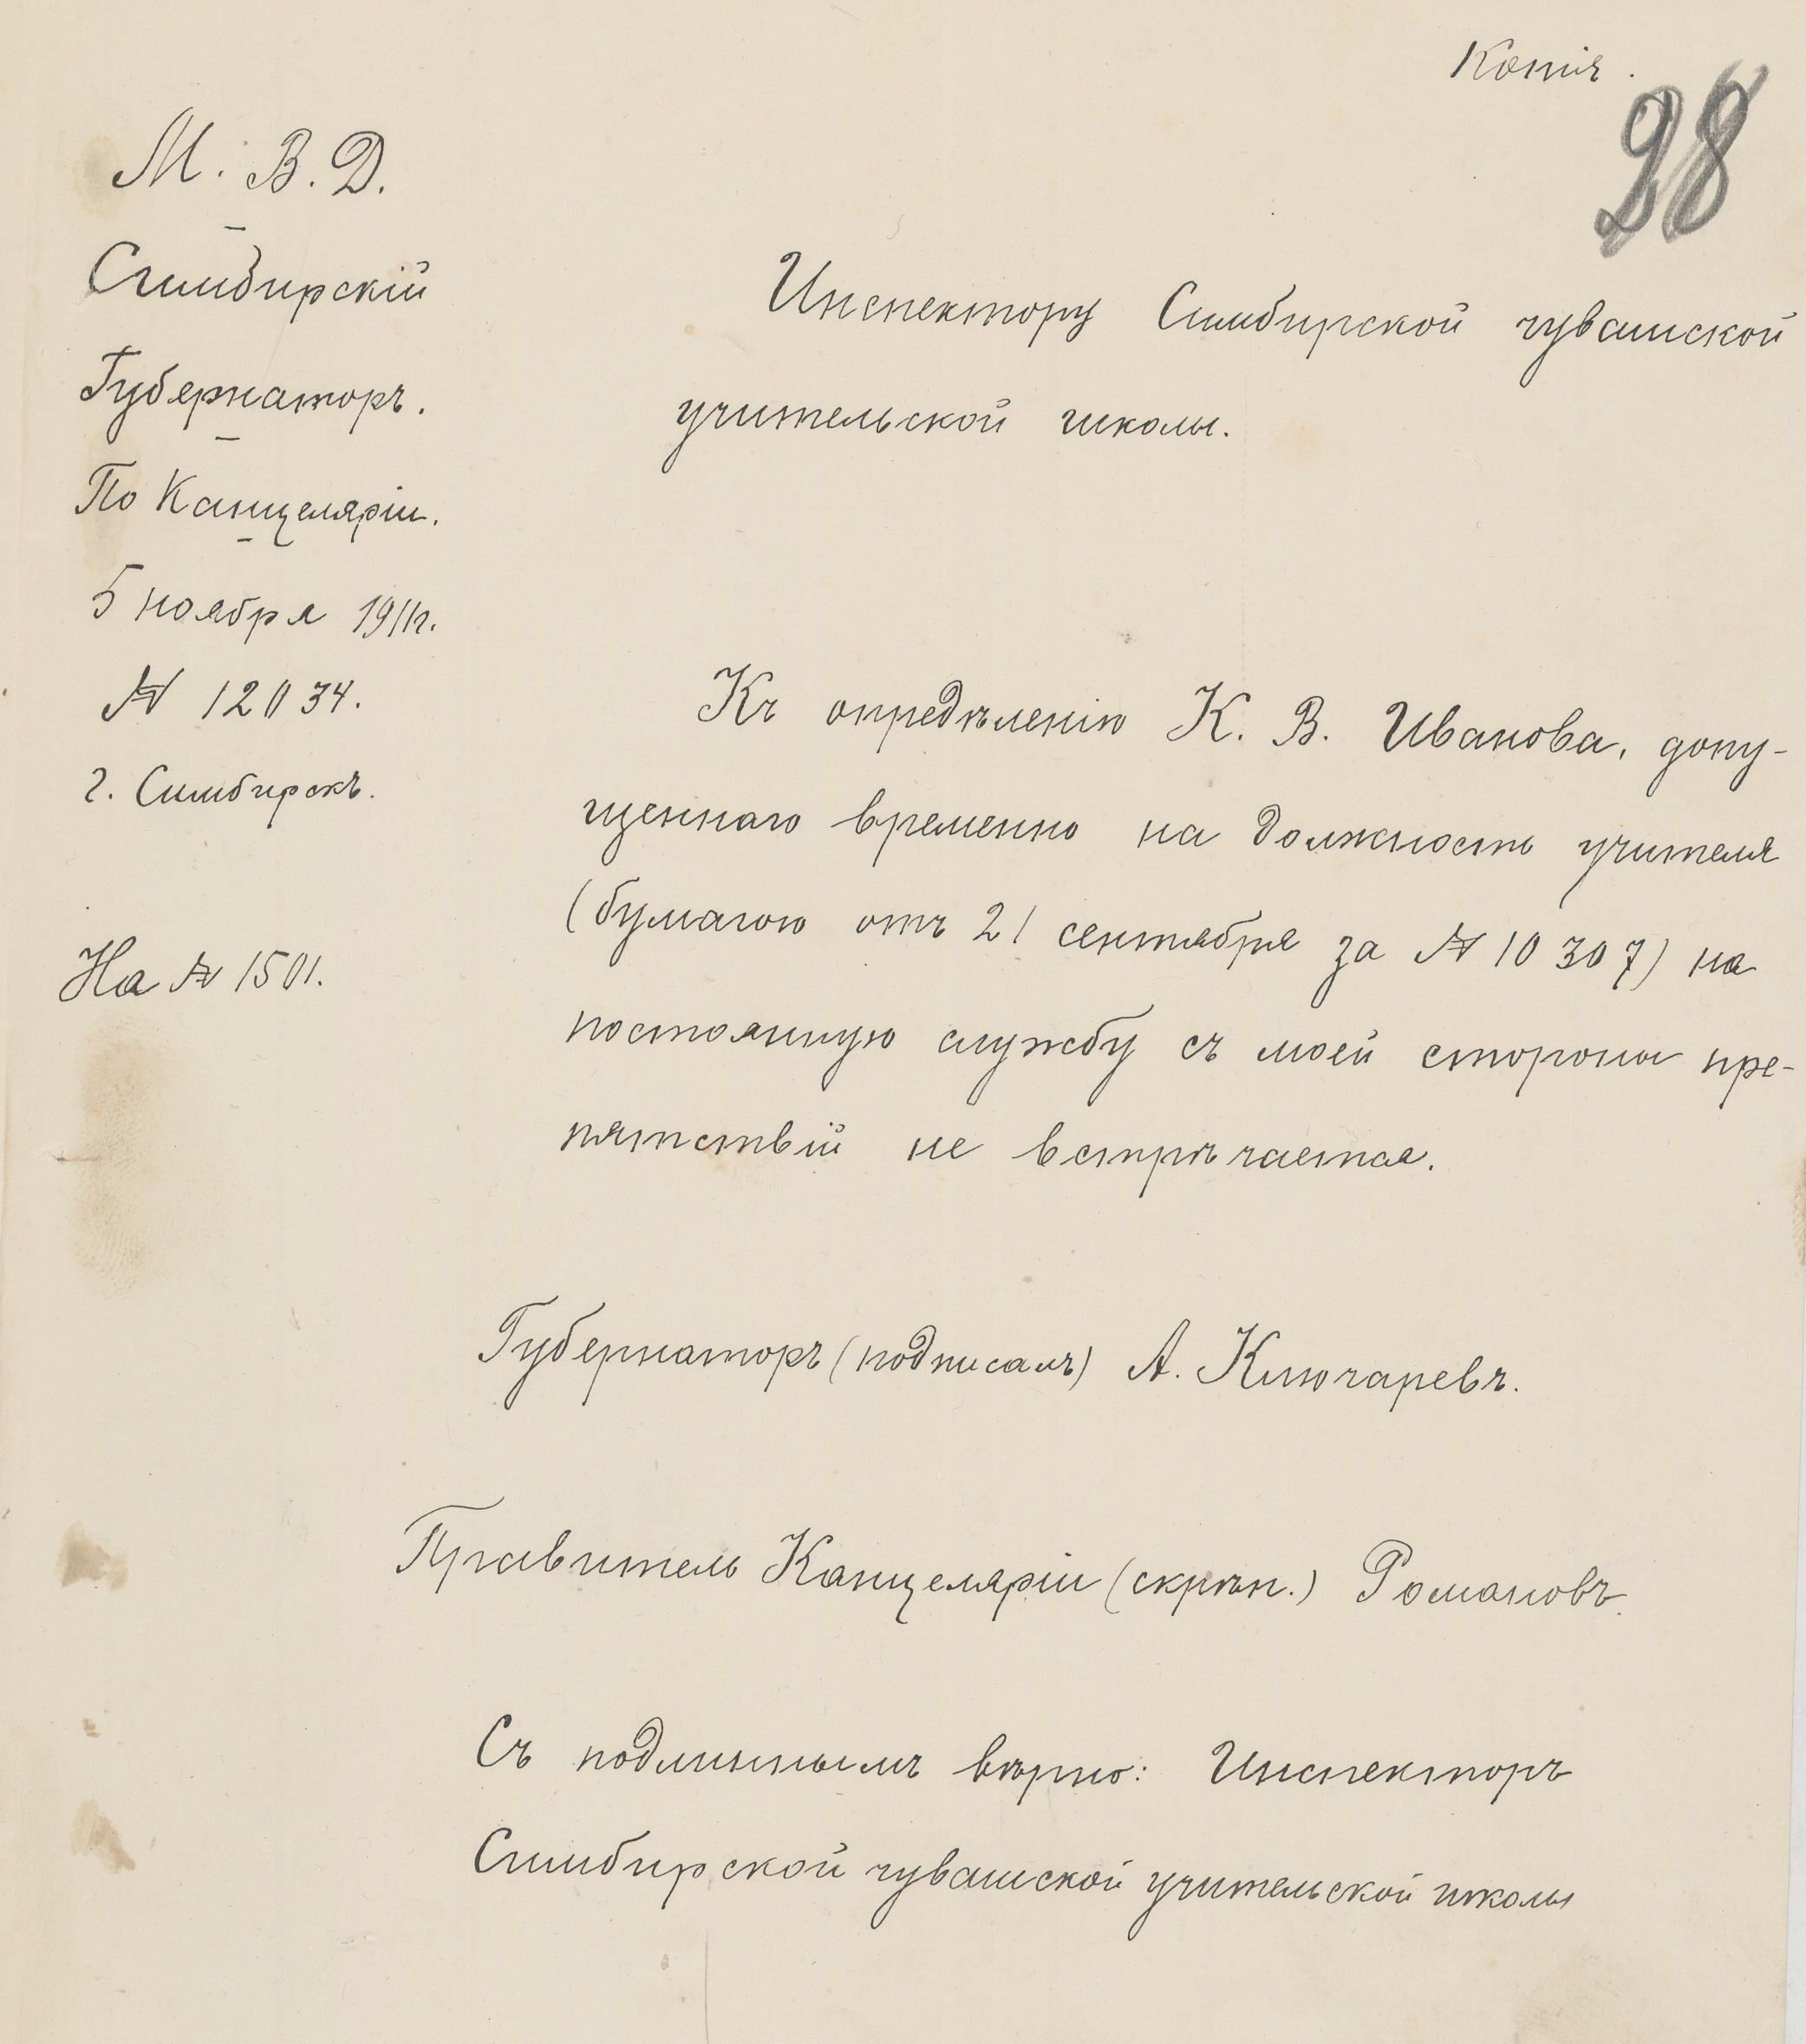 Копія.
28
М. В. Д.
Симбирскій
Губернаторъ.
По Канцеляріи.
5 ноября 1911г.
№ 12034.
г. Симбирскъ.
На № 1501.
Инспектору Симбирской чувашской
учительской школы.
Къ опредѣленію К. В. Иванова, допу-
щеннаго временно на должность учителя
(бумагою отъ 21 сентября за № 10307) на
постоянную службу съ моей стороны пре-
пятствій не встрѣчается.
Губернаторъ (подписалъ) А. Ключаревъ.
Правитель Канцеляріи (скрѣп.) Романовъ.
Съ подлиннымъ вѣрно: Инспекторъ
Симбирской чувашской учительской школы